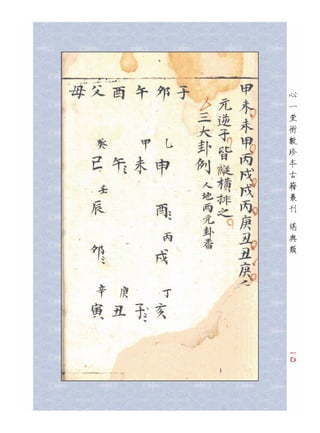 心一堂術數珍本古籍叢刊 堪輿類
一四
甲未未甲丙戌戌丙庚丑丑庚
元逆子皆縱橫排之
三大卦例 人地兩元卦番
子
卯 乙 申 酉 丙 戌 丁 亥
午 甲 未 子
酉 午 庚 丑
父 癸 巳 壬 辰 卯 辛 寅
母